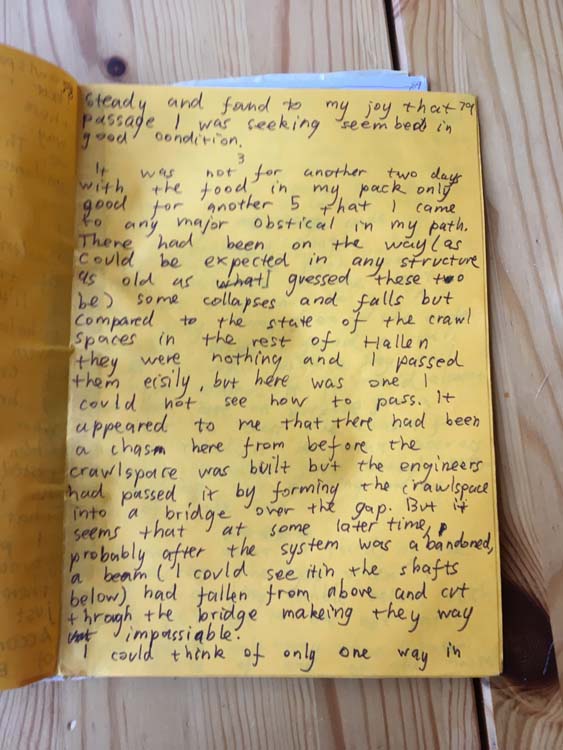 steady and found to my joy that 79
passage I was seeking seembed in
good condition.
3
It was not for another two days
with the food in my pack only
good for another 5 that I came
to any major obstical in my path.
There had been on the way (as
could be expected in any structure
as old as what I guessed these too
be) some collapses and falls but
compared to the state of the crawl
spaces in the rest of Hallen
they were nothing and I passed
them eisily, but here was one I
could not see how to pass. It
appeared to me that there had been
a chasm here from before the
crawlspace was built but the engineers
had passed it by forming the crawlspace
into a bridge over the gap. But it
seems that at some later time,
probably after the system was abandoned,
a beam (I could see it in the shafts
below) had fallen from above and cut
through the bridge makeing they way
impassiable.
I could think of only one way in